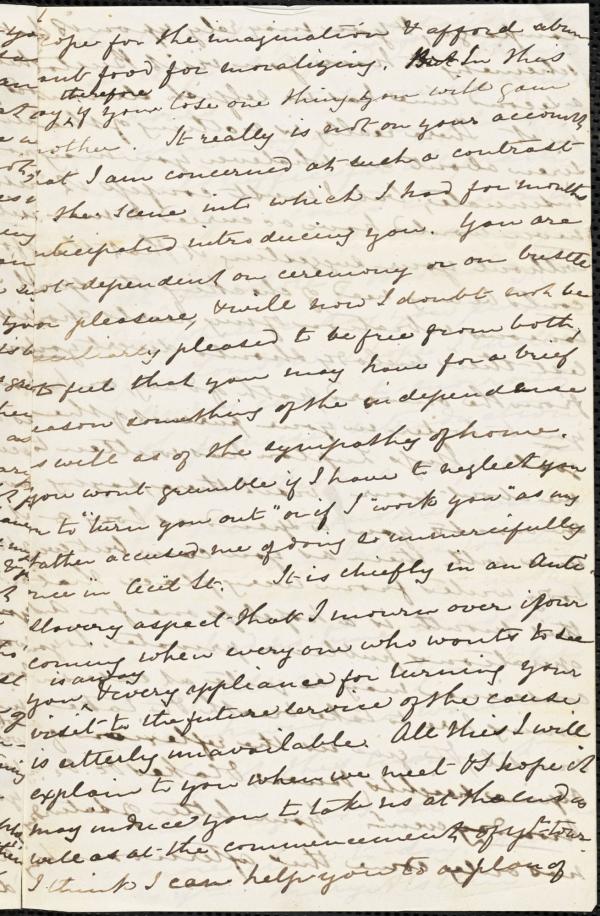 ope for the imagination & afford abun
ant food for moralizing. But In this
therefore
ay, if you lose one thing you will gain
nother. It really is not on your account
at I am concerned at such a contrast
the scene into which I had for months
nticipated introducing you. You are
not dependent on ceremony or on bustle
for pleasure, & will now I doubt not be
eculiarly pleased to be free from both,
to feel that you may have for a brief
eason something of the independence
s well as of the sympathy of home.
you wont grumble if I have to neglect you
or to "turn you out" or if I "work you" as my
father accused me of doing so unmercifully
nce in Cecil St. It is chiefly in an Anti-
slavery aspect that I mourn over your
coming when every one who wants to see
is away
you & every appliance for turning your
visit to the future service of the cause
is utterly unavailable. All this I will
explain to you when we meet & I hope it
may induce you to take us at the end as
well as at the commencement of yr. tour
I think I can help you to a plan of